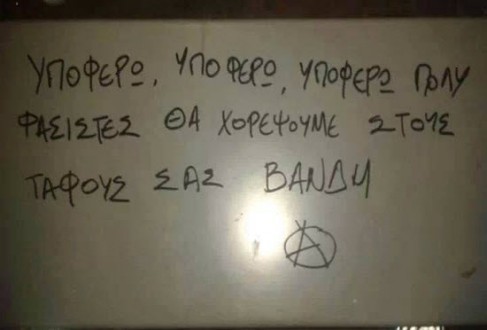 ΥΠΟΦΕΡΩ, ΥΠΟΦΕΡΩ, ΥΠΟΦΕΡΩ ΠΟΛΥ
ΦΑΣΙΣΤΕΣ ΘΑ ΧΟΡΕΨΟΥΜΕ ΣΤΟΥΣ
ΤΑΦΟΥΣ ΣΑΣ ΒΑΝΔΗ
Α